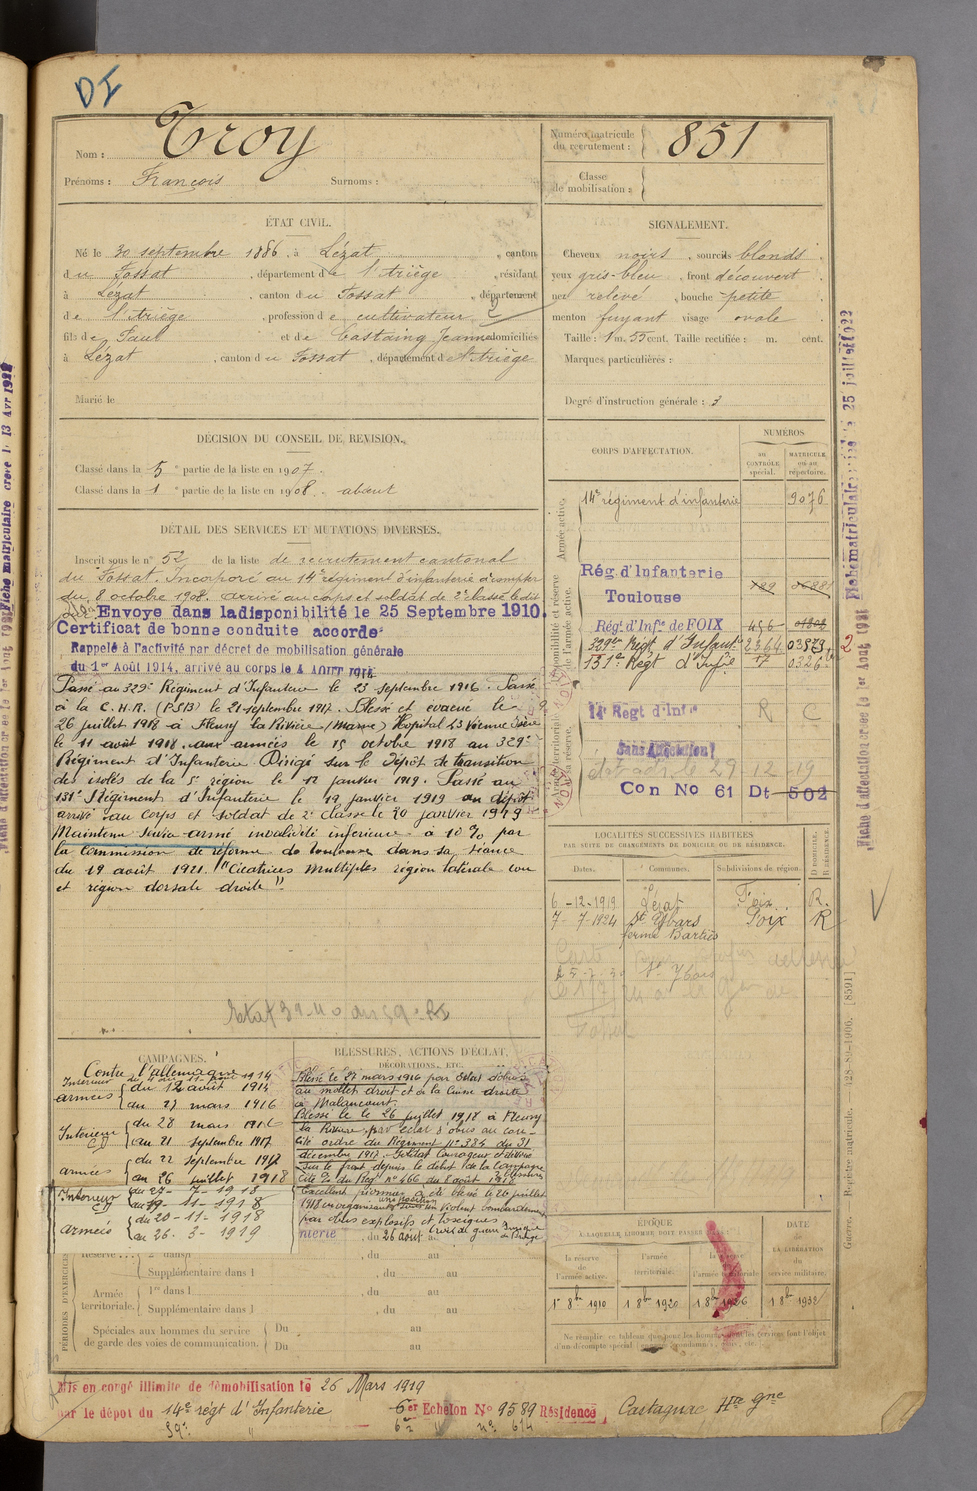 DI
Nom : Troy
Prénoms : François Surnoms :
Numéro matricule du recrutement : 851
Classe de mobilisation :
ÉTAT CIVIL.
Né le 30 septembre 1886, à Lézat, canton
du Fossat, département de l'Ariège, résidant
à Lézat, canton du Fossat, département
de l'Ariège, profession de cultivateur
fils de Paul et de Castaing Jeanne domiciliés
à Lézat, canton du Fossat, département de l'Ariège
Marié le
SIGNALEMENT.
Cheveux noirs, sourcils blonds
yeux gris-bleu, front découvert
nez relevé, bouche petite
menton fuyant visage ovale
Taille : 1 m. 55 cent. Taille rectifiée : m. cent.
Marques particulières :
Degré d'instruction générale : 3
DÉCISION DU CONSEIL DE REVISION.
Classé dans la 5e partie de la liste en 1907.
Classé dans la 1e partie de la liste en 1908. absent
DÉTAIL DES SERVICES ET MUTATIONS DIVERSES.
Inscrit sous le n° 52 de la liste de recrutement cantonal
du Fossat. Incorporé au 14e régiment d'infanterie à compter
du 8 octobre 1908. arrivé au corps et soldat de 2e classe le dit
Envoyé dans la disponibilité le 25 Septembre 1910.
Certificat de bonne conduite accordé
Rappelé à l'activité par décret de mobilisation générale
du 1er Août 1914, arrivé au corps le 4 AOUT 1914
Passé au 329e Régiment d'Infanterie le 23 septembre 1916. Passé
à la C.H.R. (PSIB) le 21 septembre 1917. Blessé et évacué le
26 juillet 1918 à Fleury la Rivière (Marne) Hopital 43 Vienne Isère
le 11 août 1918. aux armées le 15 octobre 1918 au 329e
Régiment d'Infanterie Dirigé sur le Dépôt de transition
des isolés de la 5e région le 12 janvier 1919. Passé au
131e Régiment d'Infanterie le 19 janvier 1919 au dépôt
arrivé au corps et soldat de 2e classe le 20 janvier 1919
Maintenu service armé invalidité inférieure à 10% par
la Commission de réforme de Toulouse dans sa séance
du 19 août 1921. "Cicatrices multiples région latérale cou
et région dorsale droite"
CORPS D'AFFECTATION.
NUMÉROS
AU CONTRÔLE spécial.
MATRICULE ou au répertoire.
Armée active.
14e régiment d'infanterie 9076
Disponibilité et réserve de l'armée active.
Rég. d'Infanterie
Toulouse
Rég. d'Infie de FOIX 456
329e Régt d'Infant. 2364
131e Régt d'Infie
Armée territoriale et sa réserve.
14e Régt d'Infie R C
Sans Affectation
29 12 19
Con No 61 Dt 502
LOCALITÉS SUCCESSIVES HABITÉES
PAR SUITE DE CHANGEMENTS DE DOMICILE OU DE RÉSIDENCE.
Dates. Communes. Subdivisions de région. D DOMICILE. R RÉSIDENCE.
6-12-1919 Lézat Foix R.
7-7-1924 St Ybars Foix R
ferme Bartics
St Ybars
CAMPAGNES.
Contre l'allemagne
Intérieur du 4 au 11 août 1914
armées du 12 août 1914
au 27 mars 1916
Intérieur du 28 mars 1916
CD au 21 septembre 1917
armées du 22 septembre 1917
au 26 juillet 1918
Intérieur du 27-7-1918
CD au 19-11-1918
armées du 20-11-1918
au 26-3-1919
BLESSURES, ACTIONS D'ÉCLAT, DÉCORATIONS, ETC.
Blessé le 27 mars 1916 par éclat d'obus
au mollet droit et à la cuisse droite
à Malancourt.
Blessé le 26 juillet 1918 à Fleury
la Rivière par éclat d'obus au cou
Cité ordre du Régiment n° 384 du 31
décembre 1917. Soldat courageux et dévoué
sur le front depuis le début de la campagne
2 blessures
Cité O. du Régt n° 466 du 8 août 1918
Excellent pionnier a été blessé le 26 juillet
1918 en organisant une position sous un violent bombardement
par obus explosifs et toxiques
Croix de guerre
PÉRIODES D'EXERCICES
Réserve : 2e dans l , du 26 août au
Supplémentaire dans l , du au
Armée territoriale. 1re dans l , du au
Supplémentaire dans l , du au
Spéciales aux hommes du service de garde des voies de communication. Du au
Du au
ÉPOQUE
À LAQUELLE L'HOMME DOIT PASSER DANS
la réserve de l'armée active. l'armée territoriale. la réserve de l'armée territoriale
DATE DE LA LIBÉRATION du service militaire.
1er 8bre 1910 1 8bre 1920 1 8bre 1926 1 8bre 1932
Mis en congé illimité de démobilisation le 26 Mars 1919
par le dépôt du 14e régt d'Infanterie 6er Echelon No 9589 Résidence Castagnac Hte Gne
59e " 6e " n° 614
Guerre. — Registre matricule. — 428-89-1906. [8591]
Fiche matriculaire créée le 13 Avr 1922